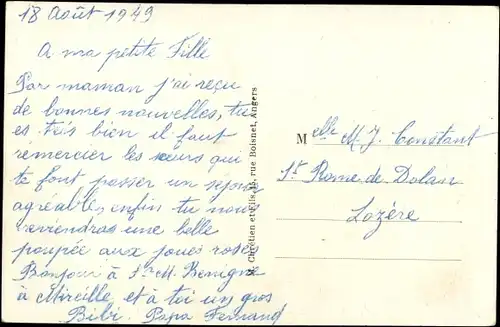 18 Août 1949
A ma petite Fille
Par maman j'ai reçu
de bonnes nouvelles, tu
es très bien il faut
remercier les sœurs qui
te font passer un séjour
agréable, enfin tu nous
reviendras une belle
poupée aux joues roses
Bonjour à Sr M. Benigne
à Mireille, et à toi un gros
Bibi. Papa Fernand
H. Chrétien et Fils, rue Boisnet, Angers
Melle M. J. Constant
St. Rome de Dolan
Lozère